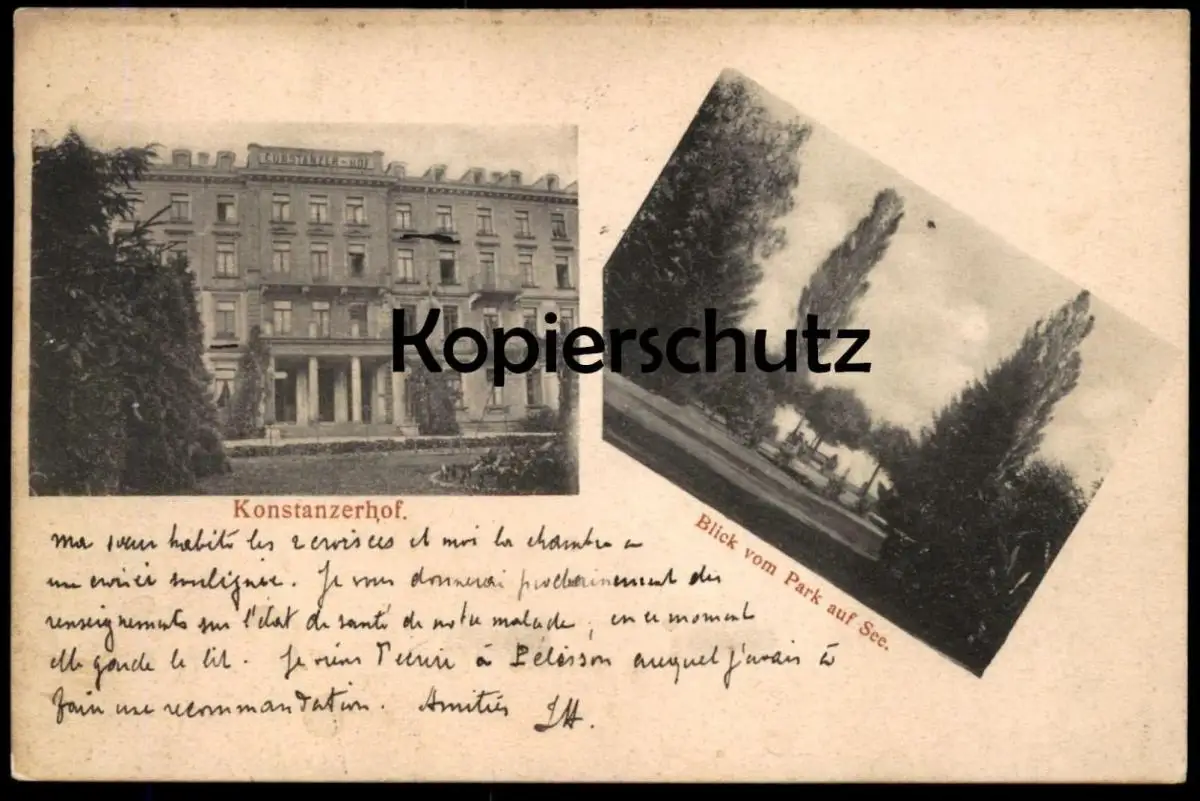 CONSTANZER-HOF
Kopierschutz
Konstanzerhof.
Blick vom Park auf See.
ma sœur habite les 2 croisées et moi la chambre a
une croisée soulignée. Je vous donnerai prochainement des
renseignements sur l'état de santé de notre malade, en ce moment
elle garde le lit. Je viens d'écrire à Pélisson auquel j'avais à
faire une recommandation. Amitiés JH.